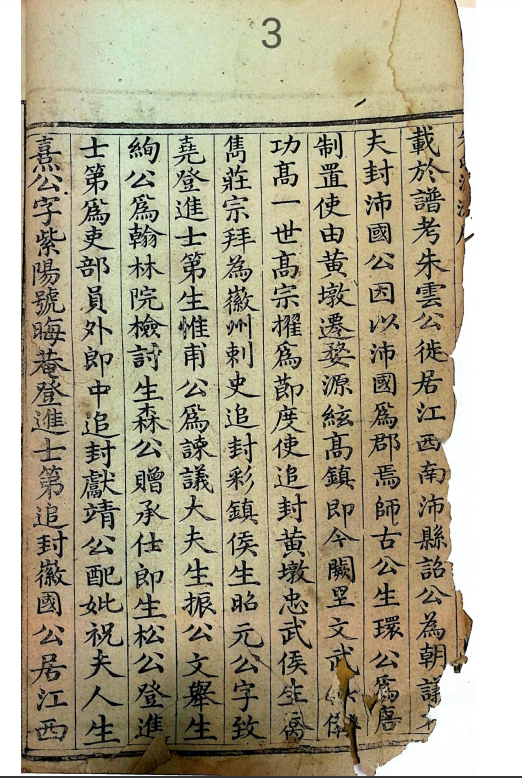 3
載於譜考朱雲公徙居江西南沛縣詔公為朝議
夫封沛國公因以沛國爲郡焉師古公生環公爲唐
制置使由黄墩遷婺源絃高鎮即今闕里文武
功髙一世髙宗擢爲節度使追封黄墩忠武侯生
雋莊宗拜為徽州刺史追封彩鎮侯生昭元公字致
堯登進士第生惟甫公爲諫議大夫生振公文舉生
絢公爲翰林院檢討生森公贈承仕郎生松公登進
士第爲吏部員外郎中追封獻靖公配妣祝夫人生
熹公字紫陽號晦菴登進士第追封徽國公居江西